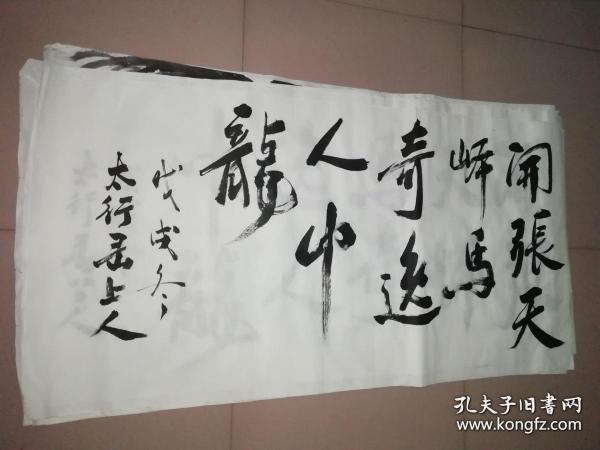 開張天
岸馬
奇逸
人中
龍
戊戌冬
太行岳上人
孔夫子旧書网
www.kongfz.com